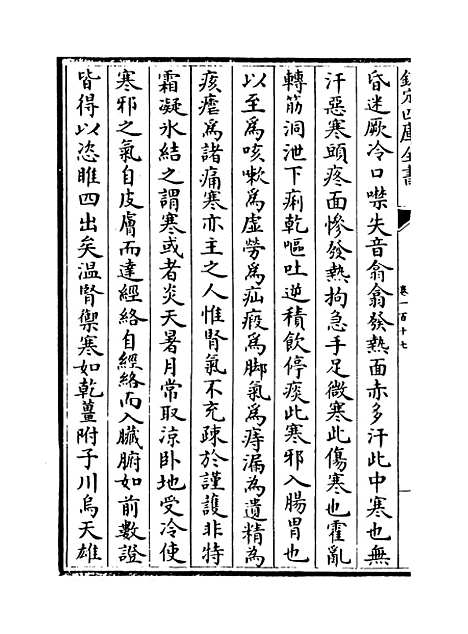 欽定四庫全書
卷一百十七
昏迷厥冷口噤失音翕翕發熱面赤多汗此中寒也無
汗惡寒頭疼面慘發熱拘急手足微寒此傷寒也霍亂
轉筋洞泄下痢乾嘔吐逆積飲停痰此寒邪入腸胃也
以至為咳嗽為虛勞為疝瘕為脚氣為痔漏為遺精為
痎瘧為諸痛寒亦主之人惟腎氣不充疎於謹護非特
霜凝氷結之謂寒或者炎天暑月常取涼卧地受冷使
寒邪之氣自皮膚而達經絡自經絡而入臟腑如前數證
皆得以恣睢四出矣温腎禦寒如乾薑附子川烏天雄